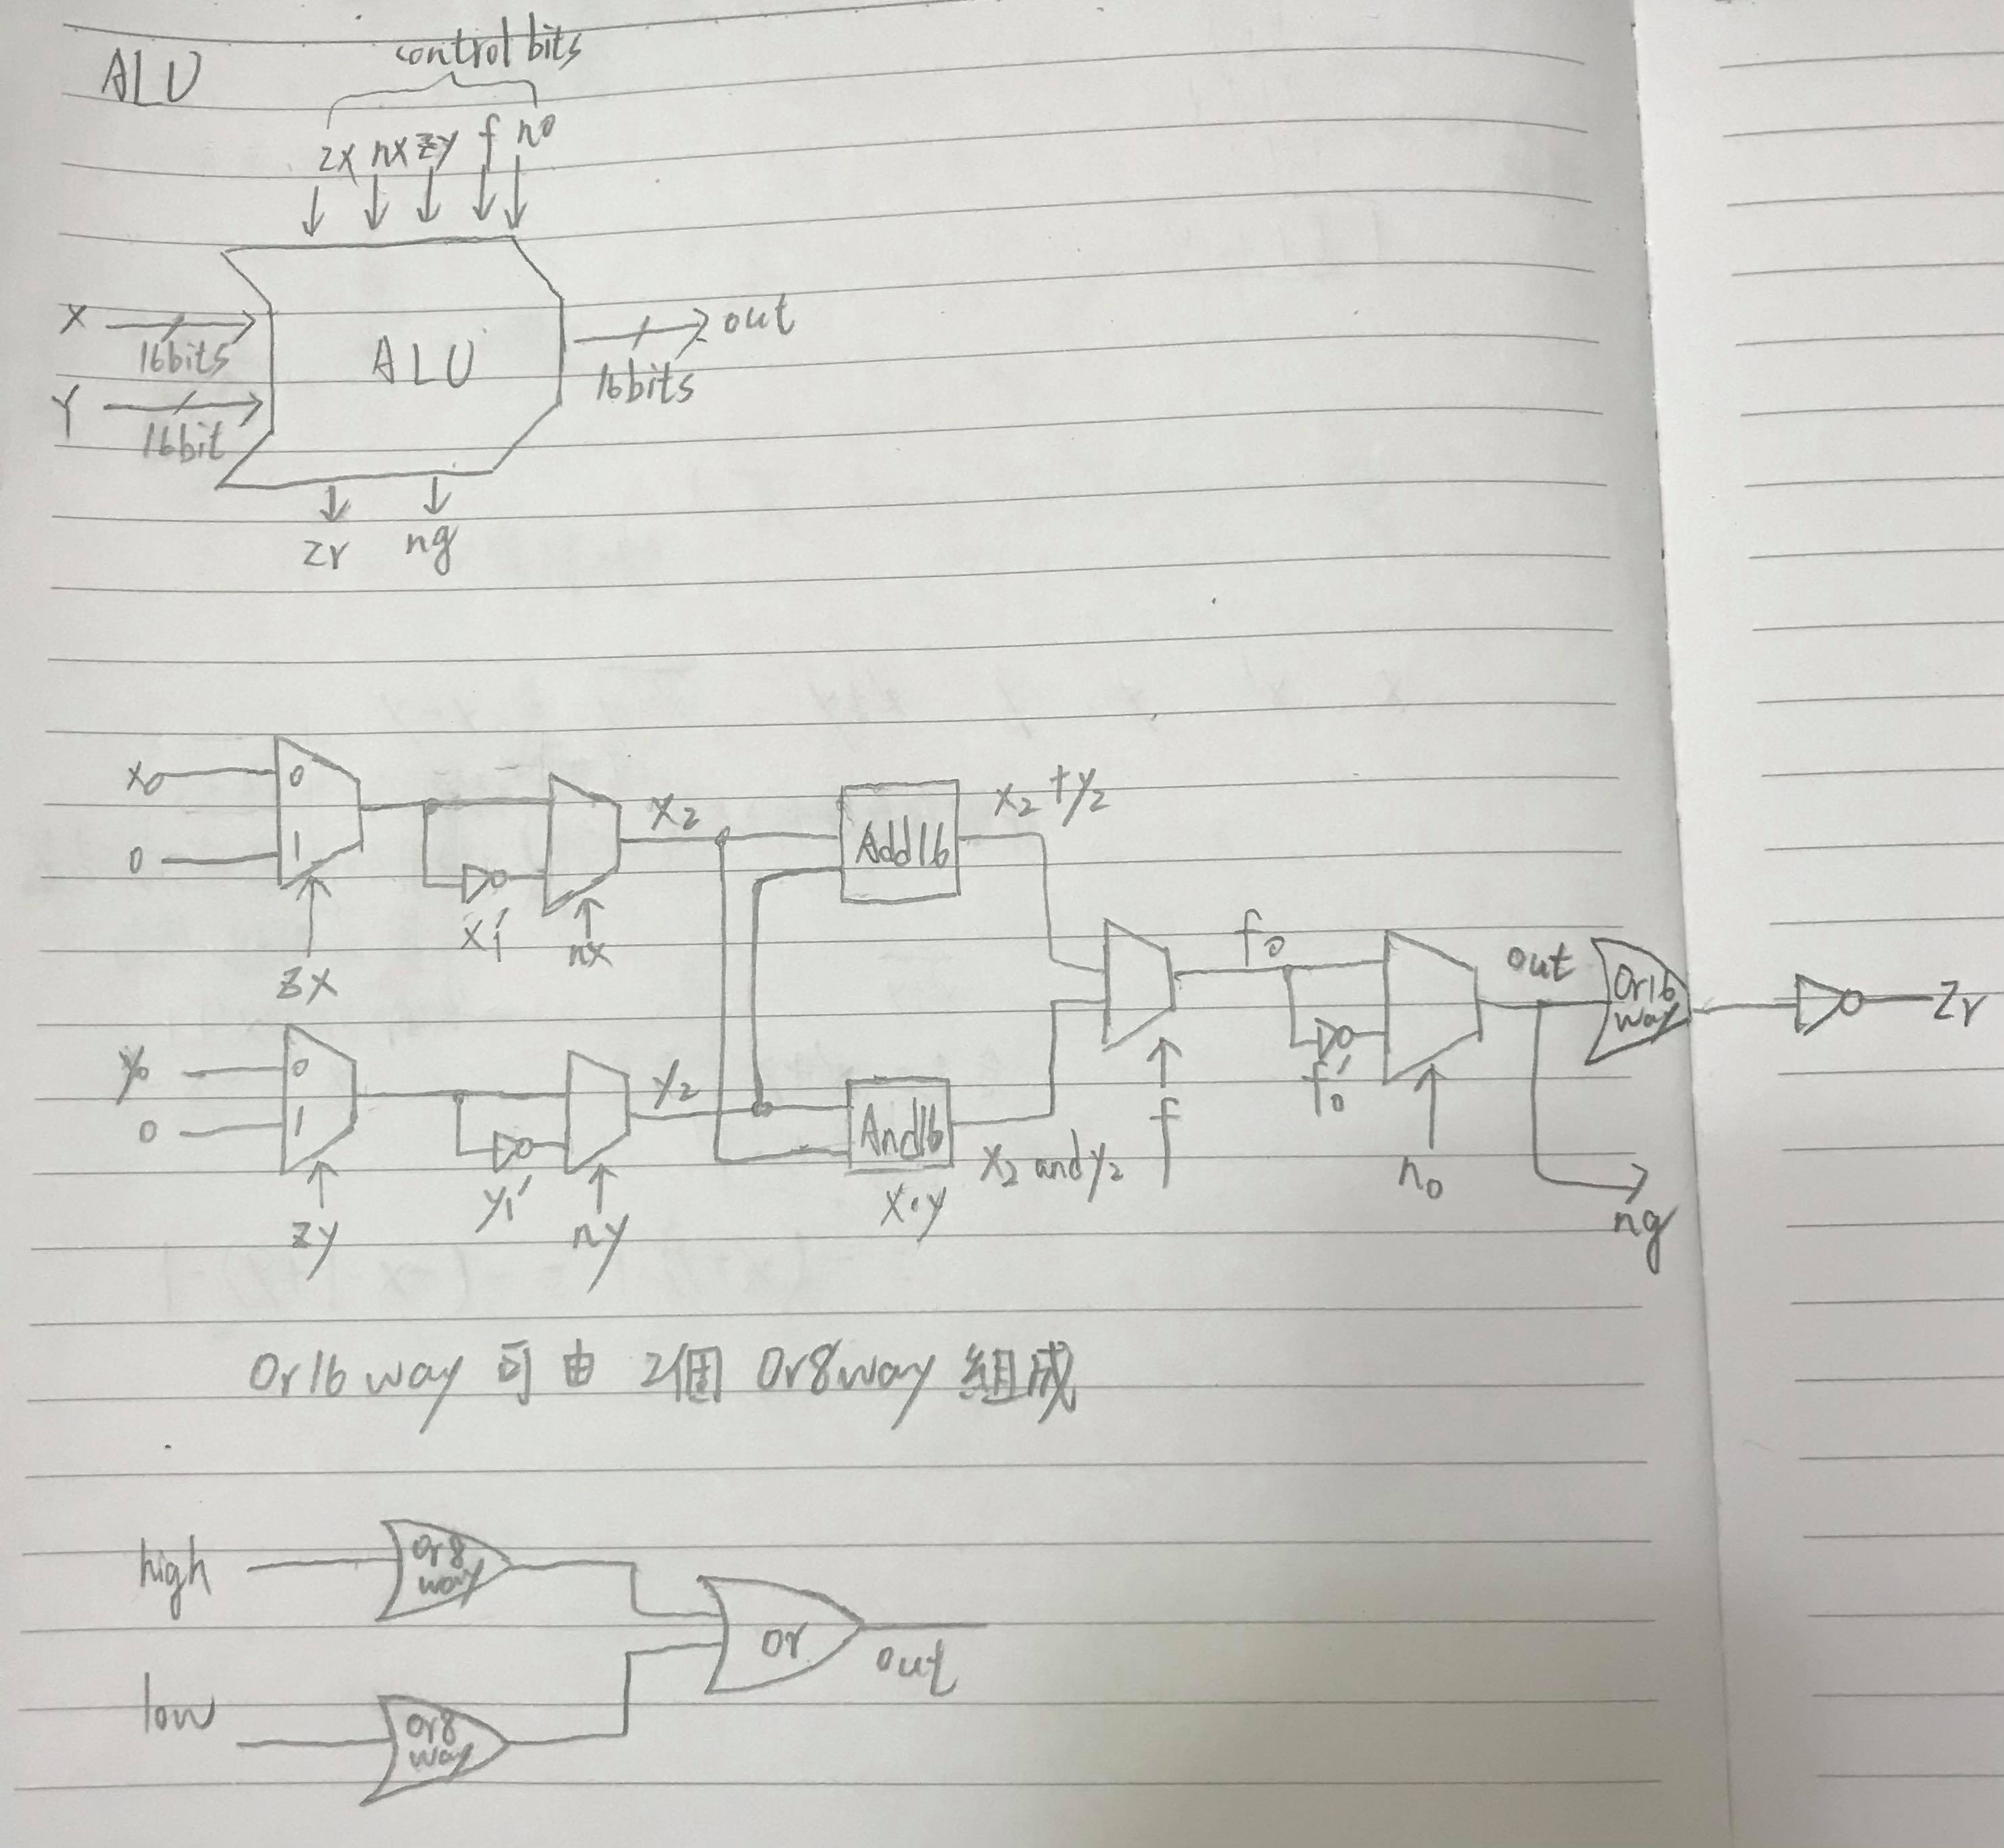 ALU
control bits
zx nx zy f no
X
16bits
Y
16bit
ALU
out
16bits
zr ng
x0
0
0
1
zx
x1'
nx
x2
Add16
x2+y2
y0
0
0
1
zy
y1'
ny
y2
And16
x·y
x2 and y2
f
f0
f0'
n0
out
Or16
way
zr
ng
Or16way 可由 2個 Or8way 組成
high
Or8
way
low
Or8
way
or
out